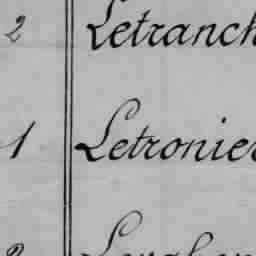 2 Letranch
1 Letronier